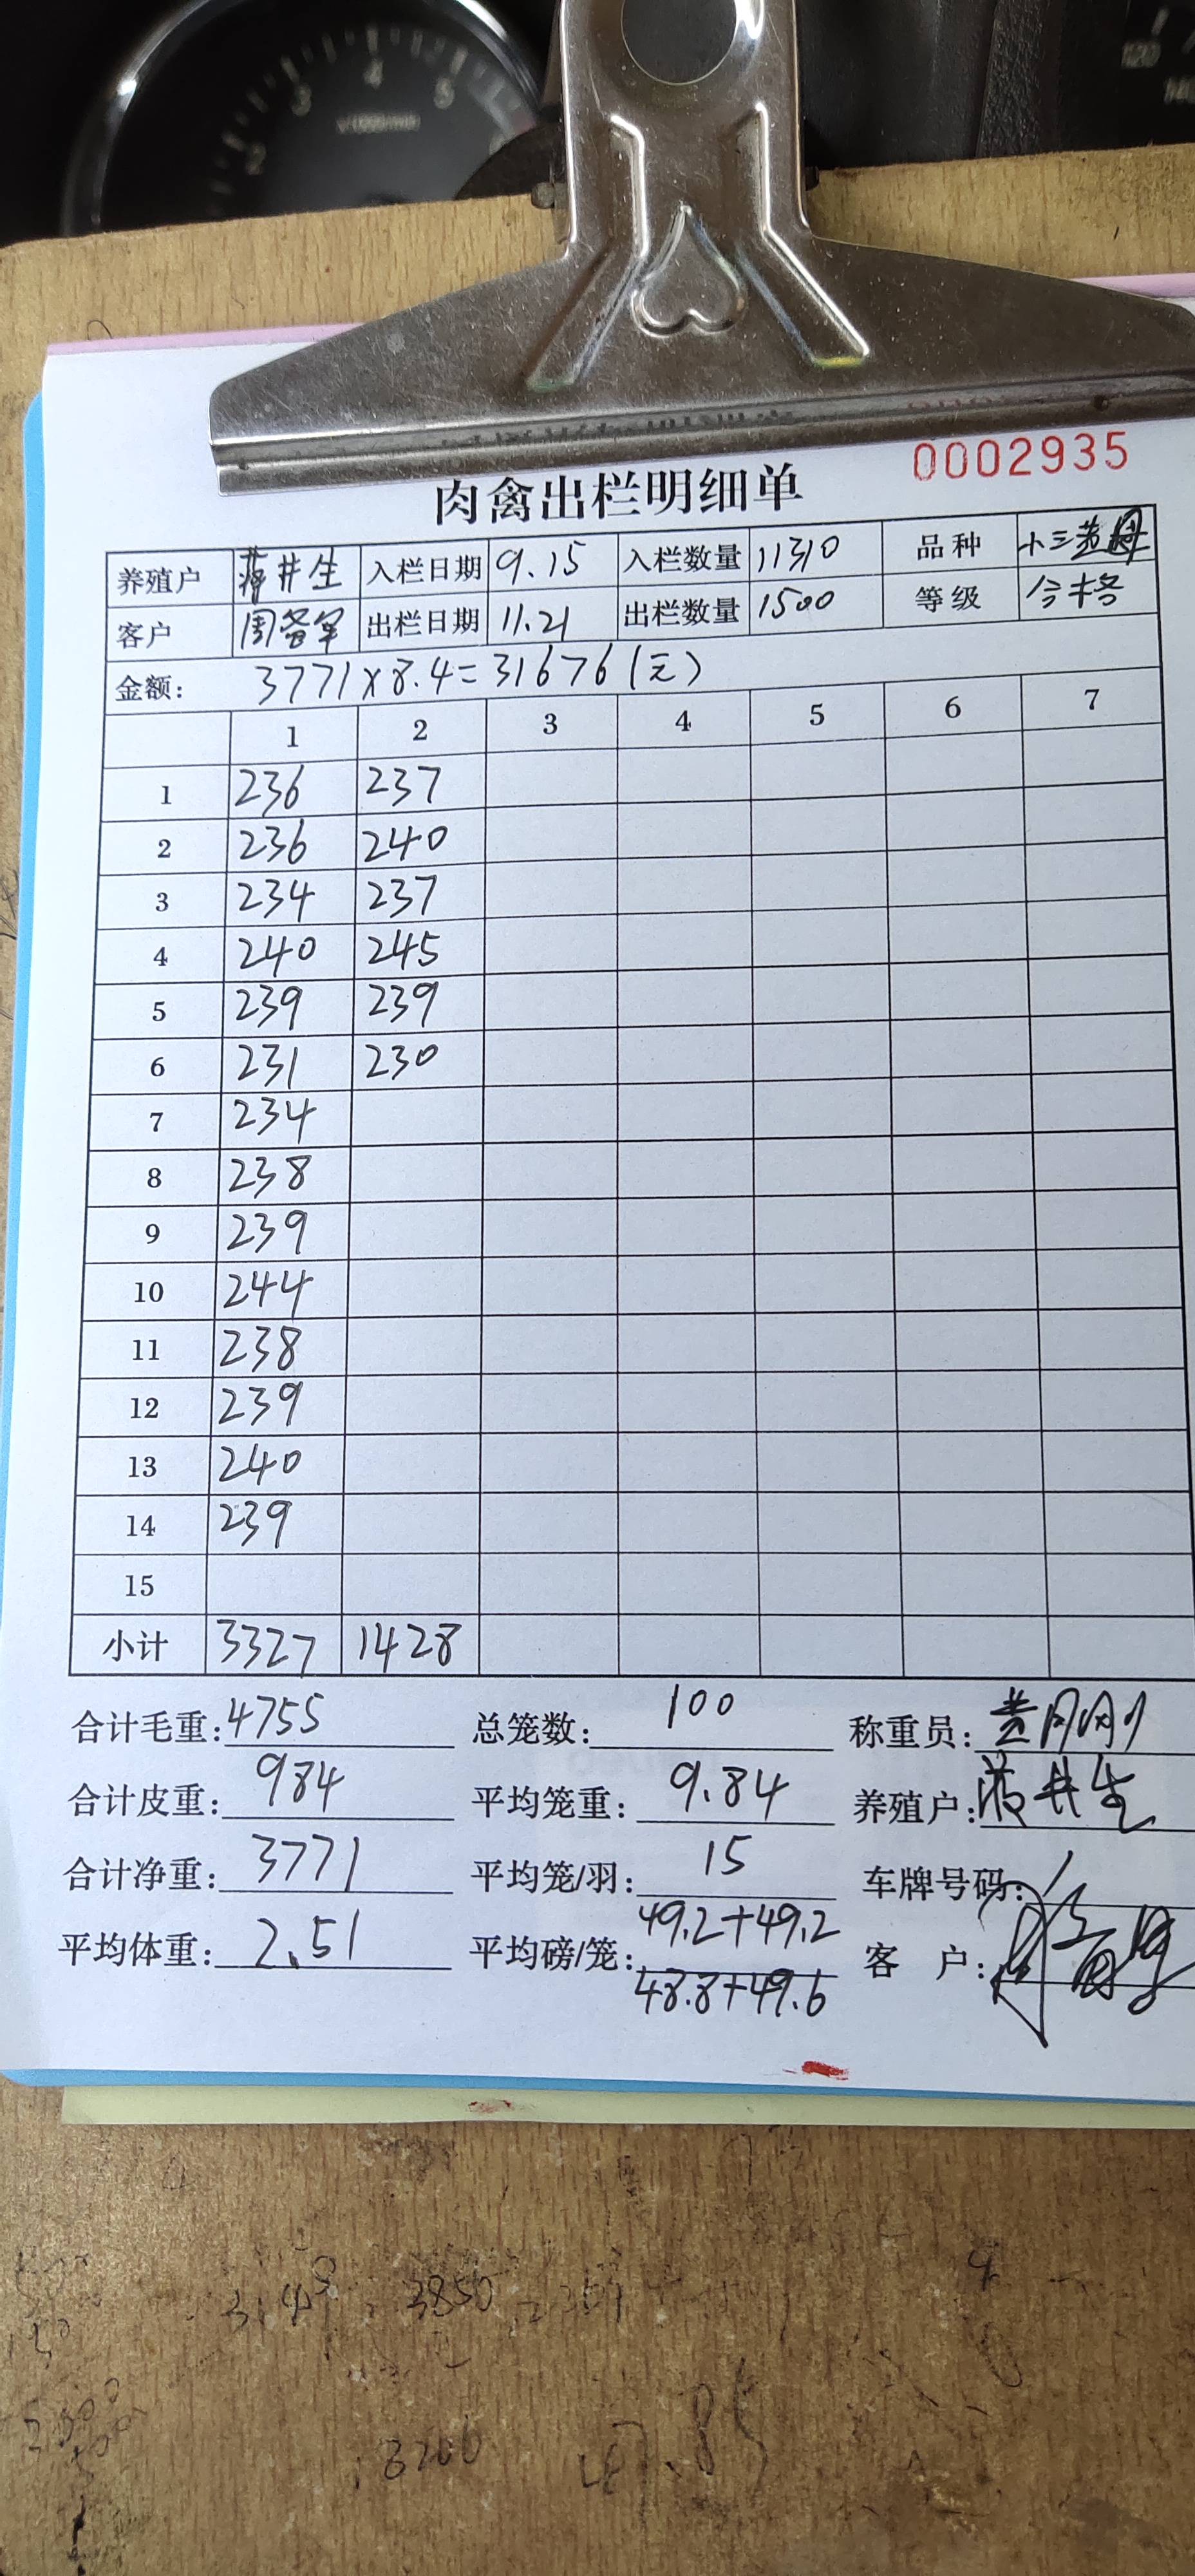 2 3 4 5
x1000r/min
120
0002935
肉禽出栏明细单
养殖户 蒋井生 入栏日期 9.15 入栏数量 11310 品种 小三黄
客户 周备军 出栏日期 11.21 出栏数量 1500 等级 合格
金额: 3771×8.4=31676(元)
1 2 3 4 5 6 7
1 236 237
2 236 240
3 234 237
4 240 245
5 239 239
6 231 230
7 234
8 238
9 239
10 244
11 238
12 239
13 240
14 239
15
小计 3327 1428
合计毛重: 4755 总笼数: 100 称重员: 黄
合计皮重: 984 平均笼重: 9.84 养殖户: 蒋井生
合计净重: 3771 平均笼/羽: 15 车牌号码: /
平均体重: 2.51 平均磅/笼: 49.2+49.2 客 户:
48.8+49.6
3850
3200